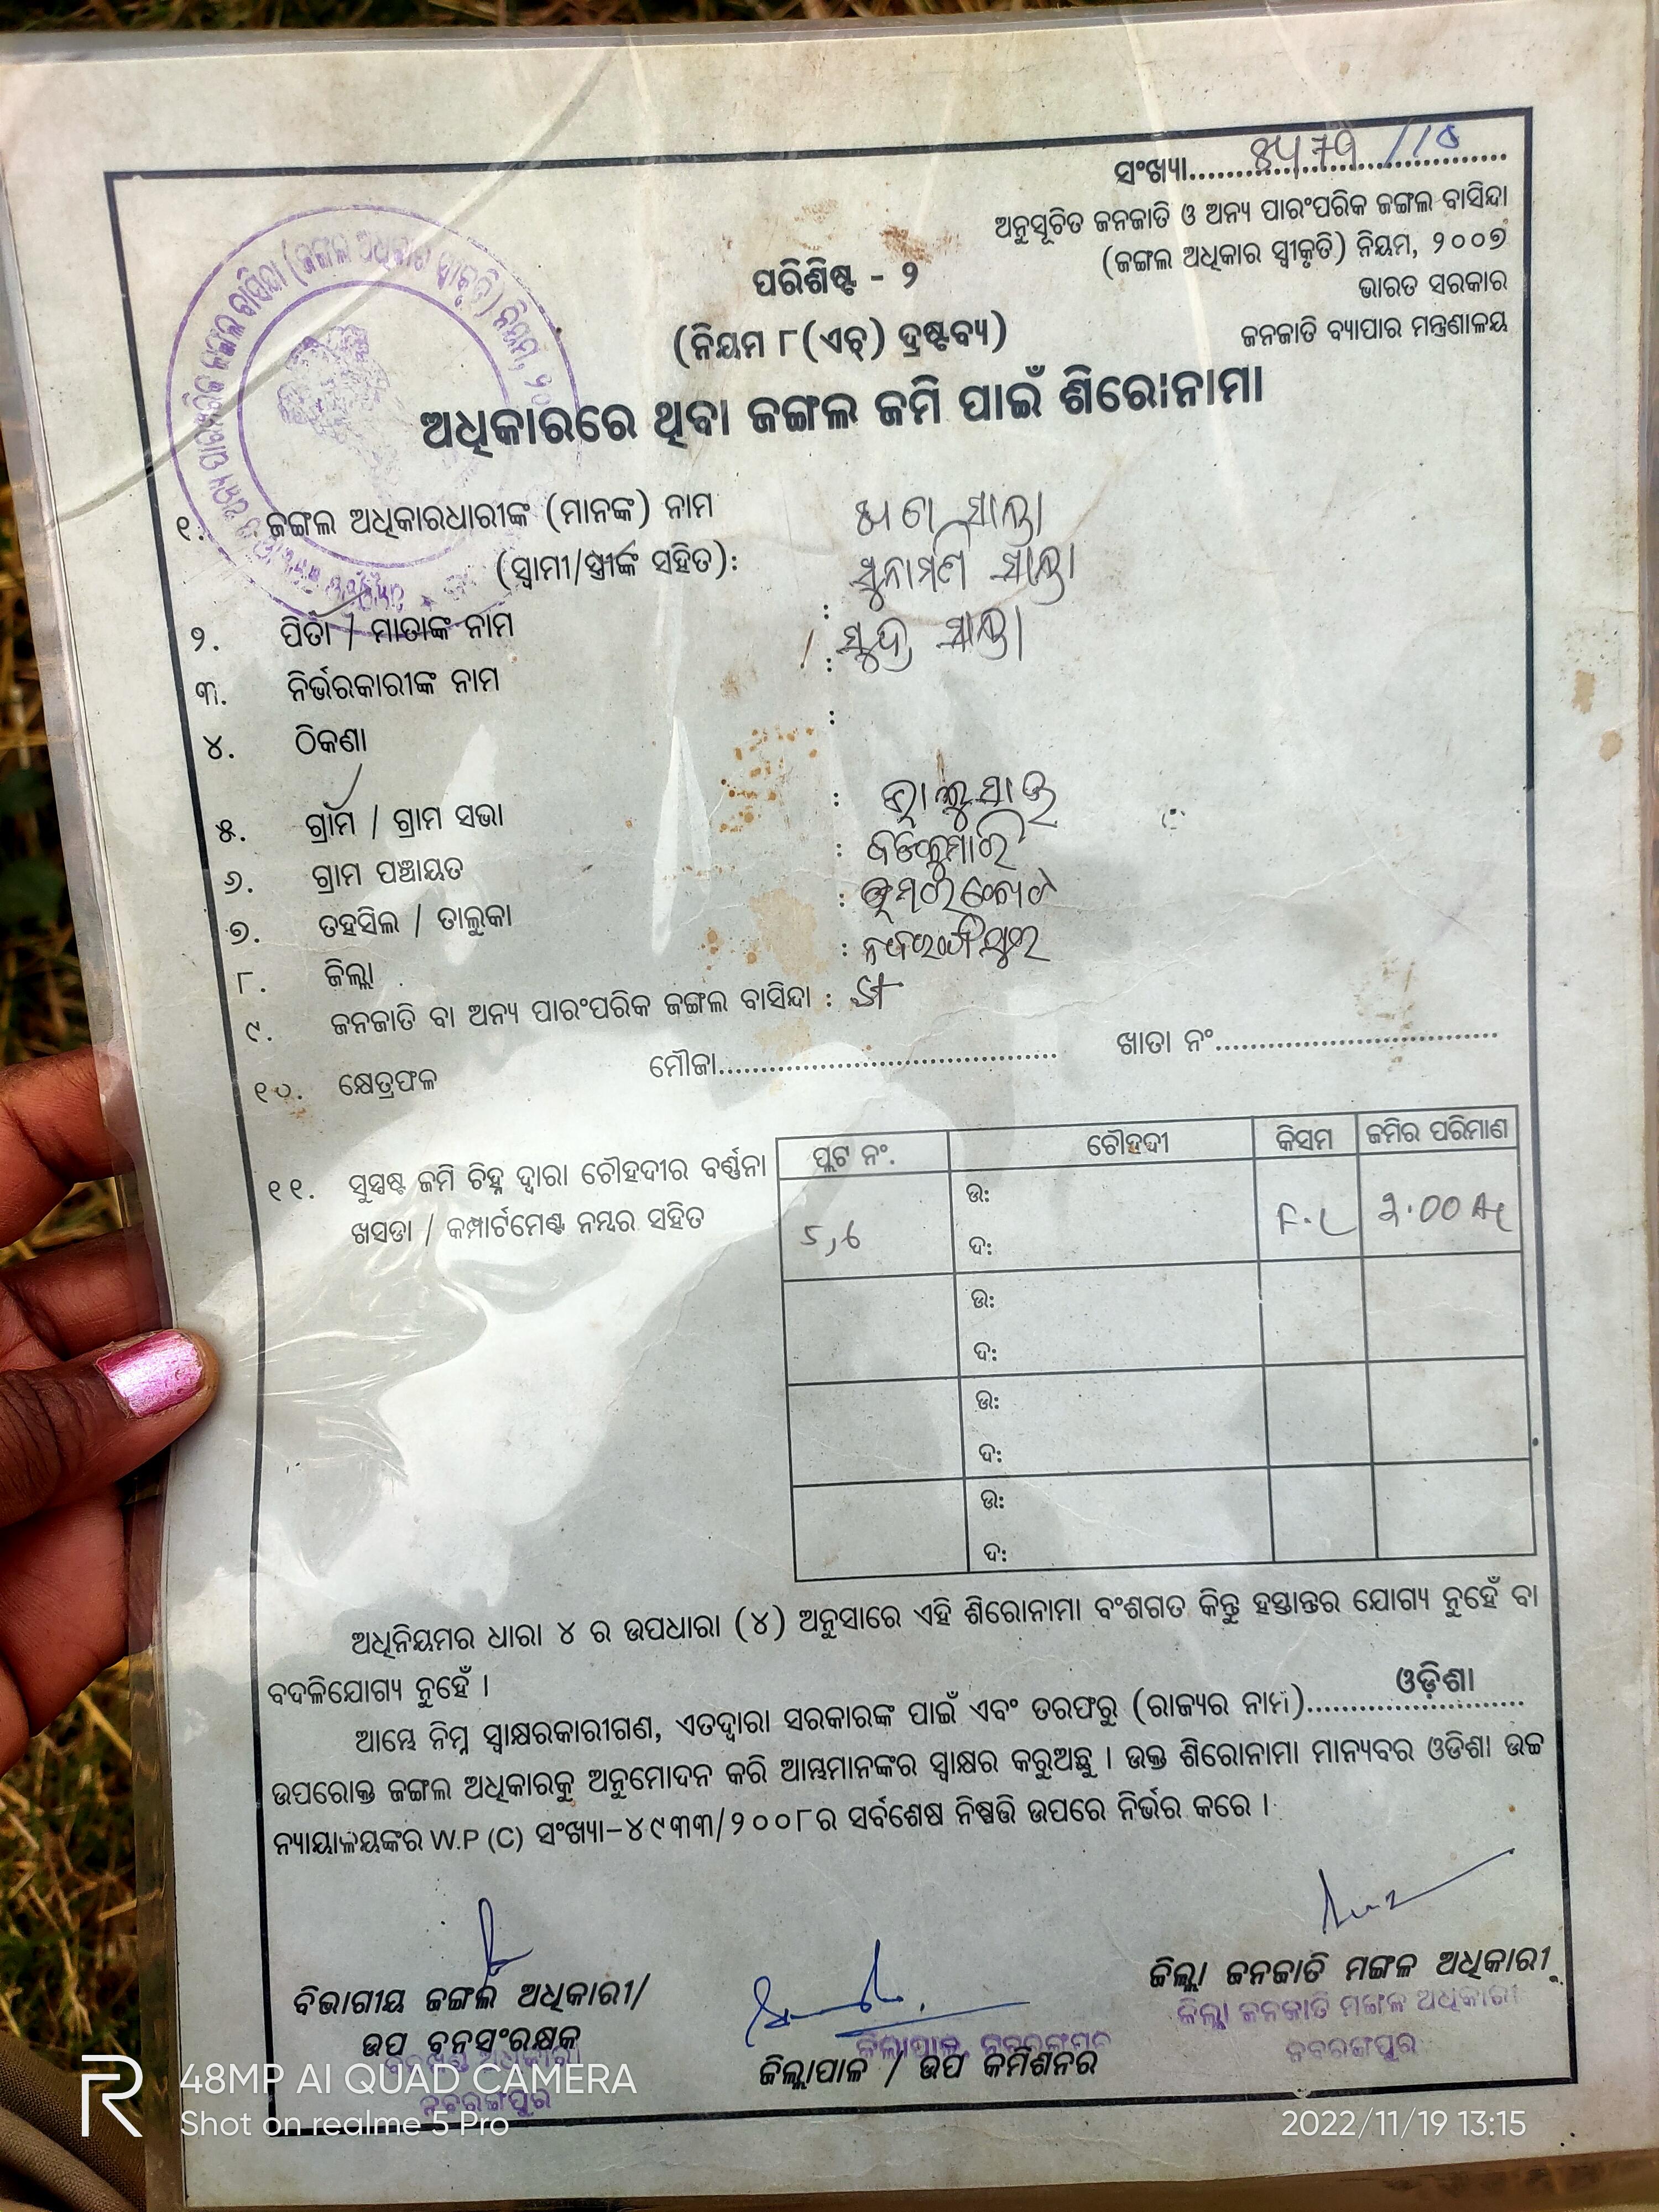 ସଂଖ୍ୟା
ଅନୁସୂଚିତ ଜନଜାତି ଓ ଅନ୍ୟ ପାରଂପରିକ ଜଙ୍ଗଲ ବାସିନ୍ଦା
(ଜଙ୍ଗଲ ଅଧିକାର ସ୍ୱୀକୃତି) ନିୟମ, ୨୦୦୭
ଭାରତ ସରକାର
ଜନଜାତି ବ୍ୟାପାର ମନ୍ତ୍ରଣାଳୟ
ପରିଶିଷ୍ଟ - ୨
(ନିୟମ ୮(ଏଚ୍) ଦ୍ରଷ୍ଟବ୍ୟ)
ଅଧିକାରରେ ଥିବା ଜଙ୍ଗଲ ଜମି ପାଇଁ ଶିରୋନାମା
୧. ଜଙ୍ଗଲ ଅଧିକାରଧାରୀଙ୍କ (ମାନଙ୍କ) ନାମ
(ସ୍ୱାମୀ/ସ୍ତ୍ରୀଙ୍କ ସହିତ):
୨. ପିତା / ମାତାଙ୍କ ନାମ :
୩. ନିର୍ଭରକାରୀଙ୍କ ନାମ :
୪. ଠିକଣା :
୫. ଗ୍ରାମ / ଗ୍ରାମ ସଭା :
୬. ଗ୍ରାମ ପଞ୍ଚାୟତ :
୭. ତହସିଲ / ତାଲୁକା : ଉମରକୋଟ
୮. ଜିଲ୍ଲା : ନବରଙ୍ଗପୁର
୯. ଜନଜାତି ବା ଅନ୍ୟ ପାରଂପରିକ ଜଙ୍ଗଲ ବାସିନ୍ଦା :
୧୦. କ୍ଷେତ୍ରଫଳ ମୌଜା ଖାତା ନଂ
୧୧. ସୁସ୍ପଷ୍ଟ ଜମି ଚିହ୍ନ ଦ୍ୱାରା ଚୌହଦୀର ବର୍ଣ୍ଣନା
ଖସଡା / କମ୍ପାର୍ଟମେଣ୍ଟ ନମ୍ବର ସହିତ
ପ୍ଲଟ ନଂ. ଚୌହଦୀ କିସମ ଜମିର ପରିମାଣ
ଉଃ
ଦଃ
ଉଃ
ଦଃ
ଉଃ
ଦଃ
ଉଃ
ଦଃ
ଅଧିନିୟମର ଧାରା ୪ ର ଉପଧାରା (୪) ଅନୁସାରେ ଏହି ଶିରୋନାମା ବଂଶଗତ କିନ୍ତୁ ହସ୍ତାନ୍ତର ଯୋଗ୍ୟ ନୁହେଁ ବା
ବଦଳିଯୋଗ୍ୟ ନୁହେଁ ।
ଆମ୍ଭେ ନିମ୍ନ ସ୍ୱାକ୍ଷରକାରୀଗଣ, ଏତଦ୍ୱାରା ସରକାରଙ୍କ ପାଇଁ ଏବଂ ତରଫରୁ (ରାଜ୍ୟର ନାମ) ଓଡ଼ିଶା
ଉପରୋକ୍ତ ଜଙ୍ଗଲ ଅଧିକାରକୁ ଅନୁମୋଦନ କରି ଆମ୍ଭମାନଙ୍କର ସ୍ୱାକ୍ଷର କରୁଅଛୁ । ଉକ୍ତ ଶିରୋନାମା ମାନ୍ୟବର ଓଡିଶା ଉଚ୍ଚ
ନ୍ୟାୟାଳୟଙ୍କର W.P (C) ସଂଖ୍ୟା-୪୯୩୩/୨୦୦୮ର ସର୍ବଶେଷ ନିଷ୍ପତ୍ତି ଉପରେ ନିର୍ଭର କରେ ।
ବିଭାଗୀୟ ଜଙ୍ଗଲ ଅଧିକାରୀ/
ଉପ ବନସଂରକ୍ଷକ
ନବରଙ୍ଗପୁର
ଜିଲ୍ଲାପାଳ / ଉପ କମିଶନର
ଜିଲ୍ଲା ଜନଜାତି ମଙ୍ଗଳ ଅଧିକାରୀ
ଜିଲ୍ଲା ଜନଜାତି ମଙ୍ଗଳ ଅଧିକାରୀ
ନବରଙ୍ଗପୁର
48MP AI QUAD CAMERA
Shot on realme 5 Pro
2022/11/19 13:15